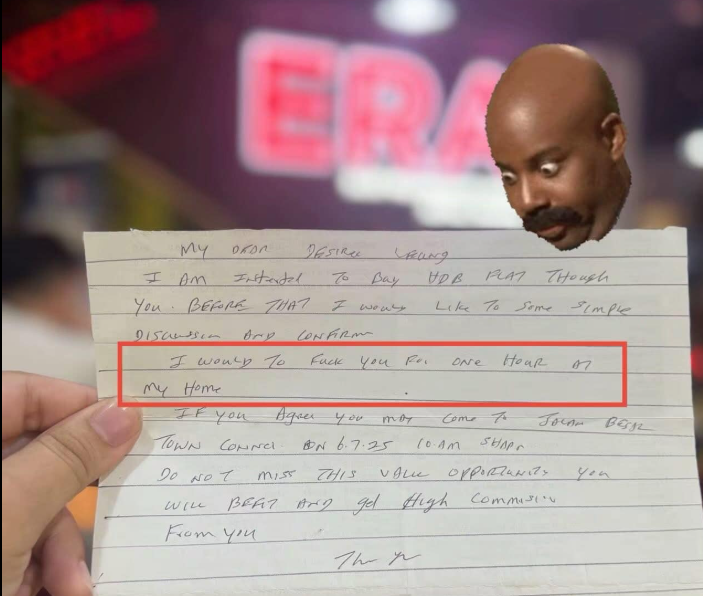 ERA
My DEAR DESIREE LEUNG
I AM Intented To Buy HDB FLAT Though
You. BEFORE THAT I would Like To Some Simple
DISCUSSION AND CONFIRM
I would To Fuck you For ONE HOUR AT
My Home
IF you Agree you may Come To JALAN BESAR
TOWN ON 6.7.25 10 AM SHARP
DO NOT miss THIS VALUE OPPORTUNITY you
WILL AND get High
From you